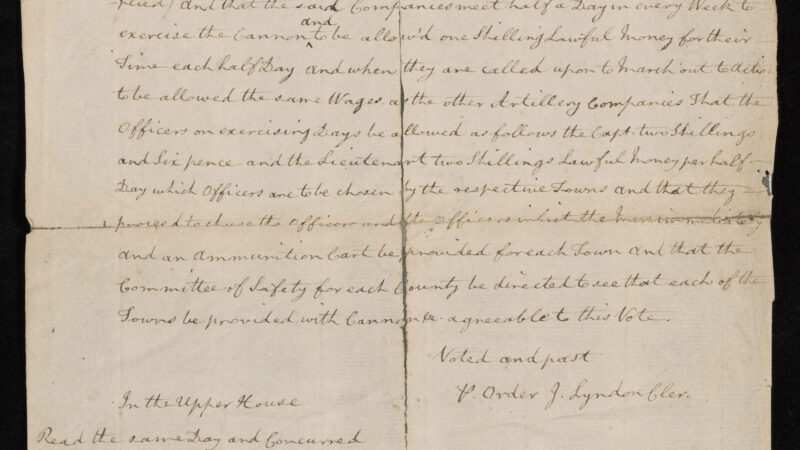 plied) and that the said Companies meet half a Day in every Week to
and
exercise the Cannon ^ to be allow'd one Shilling Lawful Money for their
Time each half Day and when they are called upon to March out to Actio
to be allowed the same Wages as the other Artillery Companies That the
Officers on exercising Days be allowed as follows the Capt. two Shillings
and Six pence and the Lieutenant two Shillings Lawful Money per half
Day which Officers are to be chosen by the respective Towns and that they
proceed to chuse the Officers and the Officers inlist the Men immediately
and an Ammunition Cart be provided for each Town and that the
Committee of Safety for each County be directed to see that each of the
Towns be provided with Cannon &c. agreeable to this Vote.
Voted and past
P. Order J. Lyndon Cler.
In the Upper House
Read the same Day and Concurred